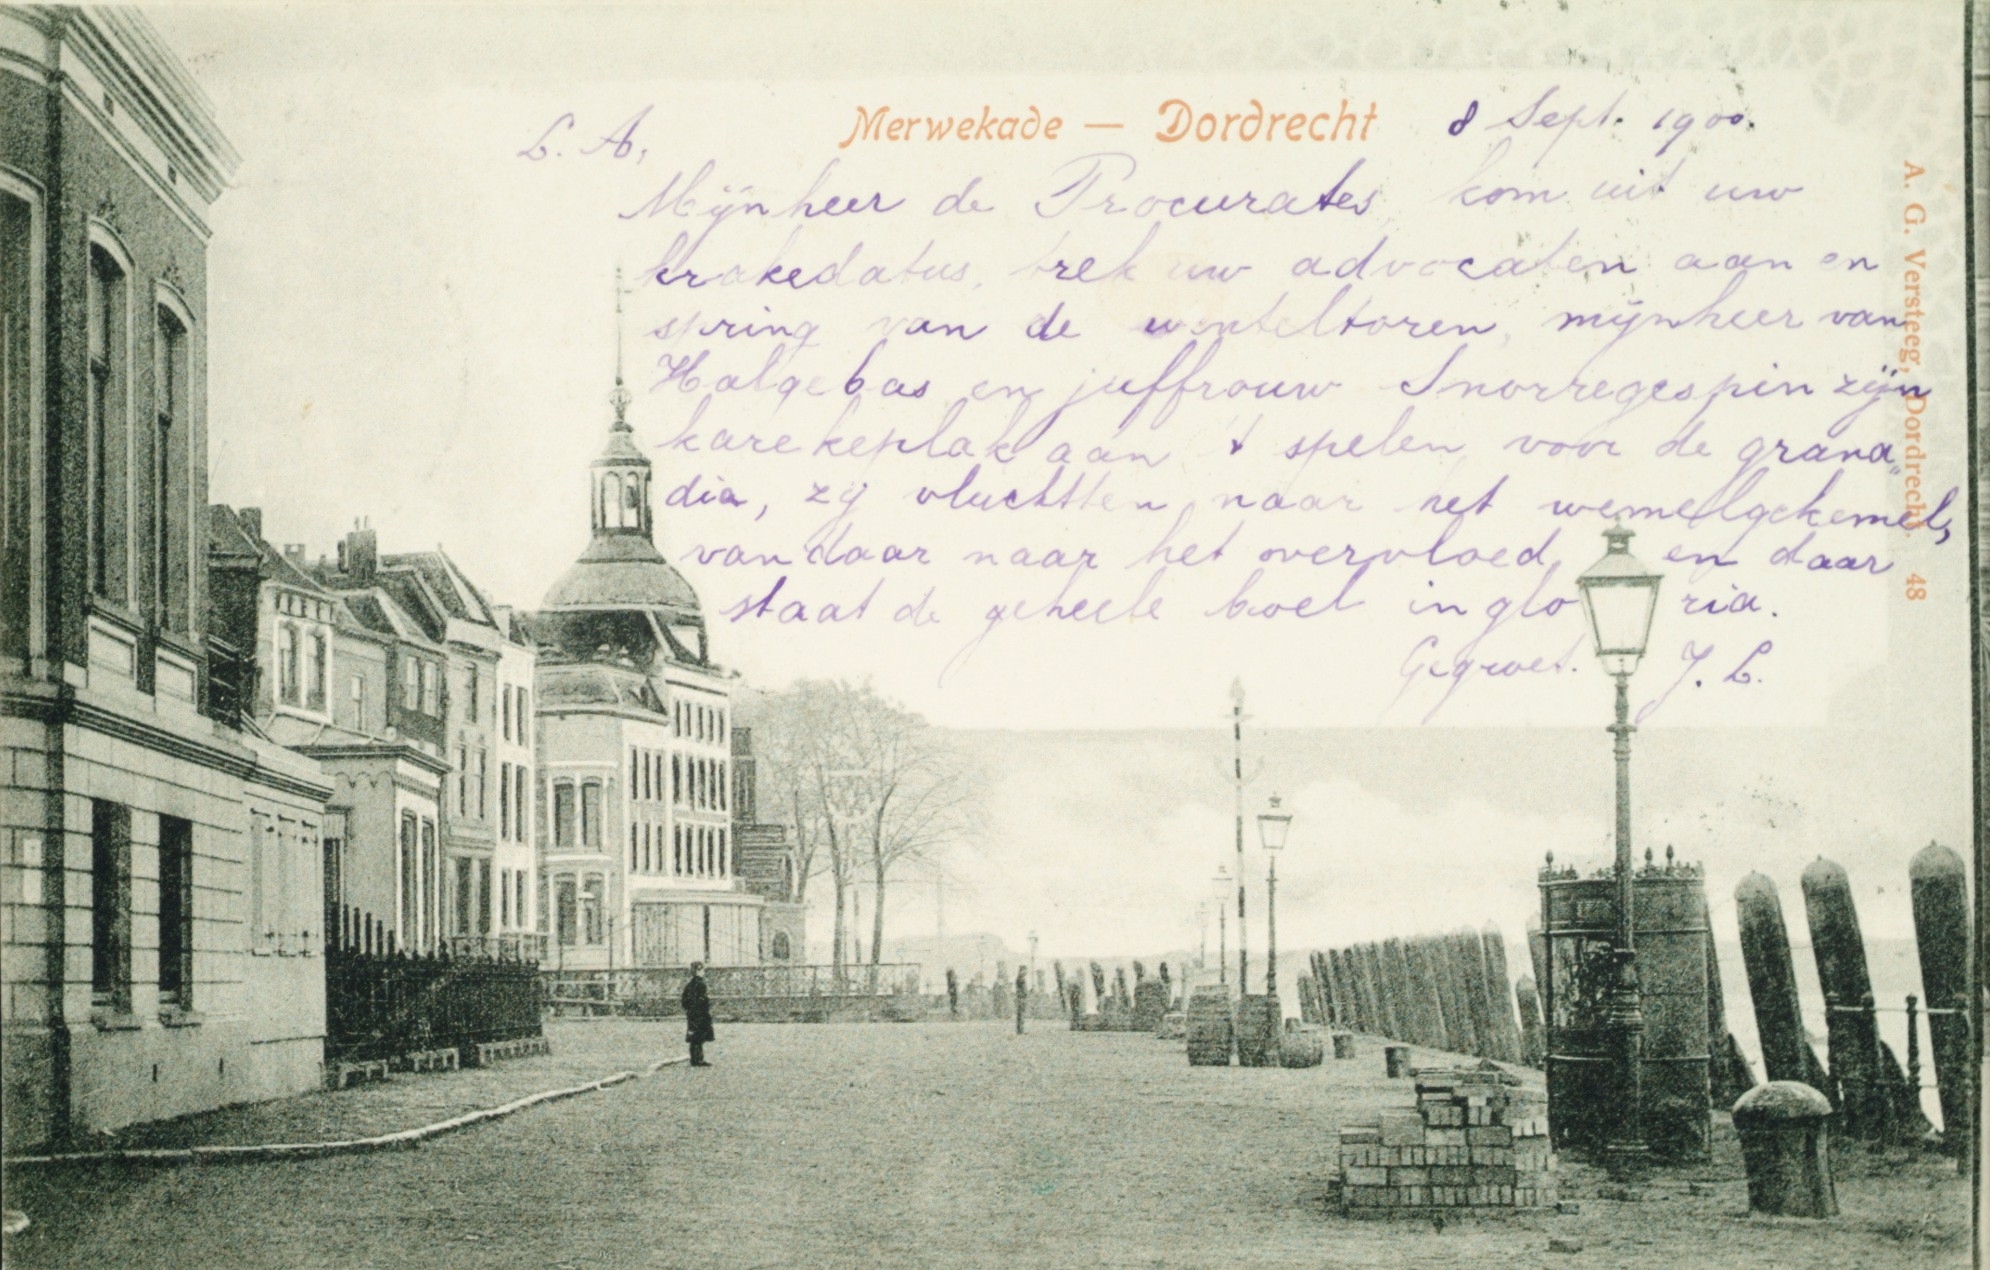 Merwekade — Dordrecht
8 Sept. 1900.
L. A,
Mijnheer de Procurates, kom uit uw
krakedatus, trek uw advocaten aan en
spring van de wenteltoren, mijnheer van
Halgebas en juffrouw Snorregespin zijn
karekeplak aan 't spelen voor de grana„
dia, zij vluchtten naar het wemelgekemel,
van daar naar het overvloed, en daar
staat de geheele boel in gloria.
Gegroet. J. L.
A. G. Versteeg, Dordrecht. 48